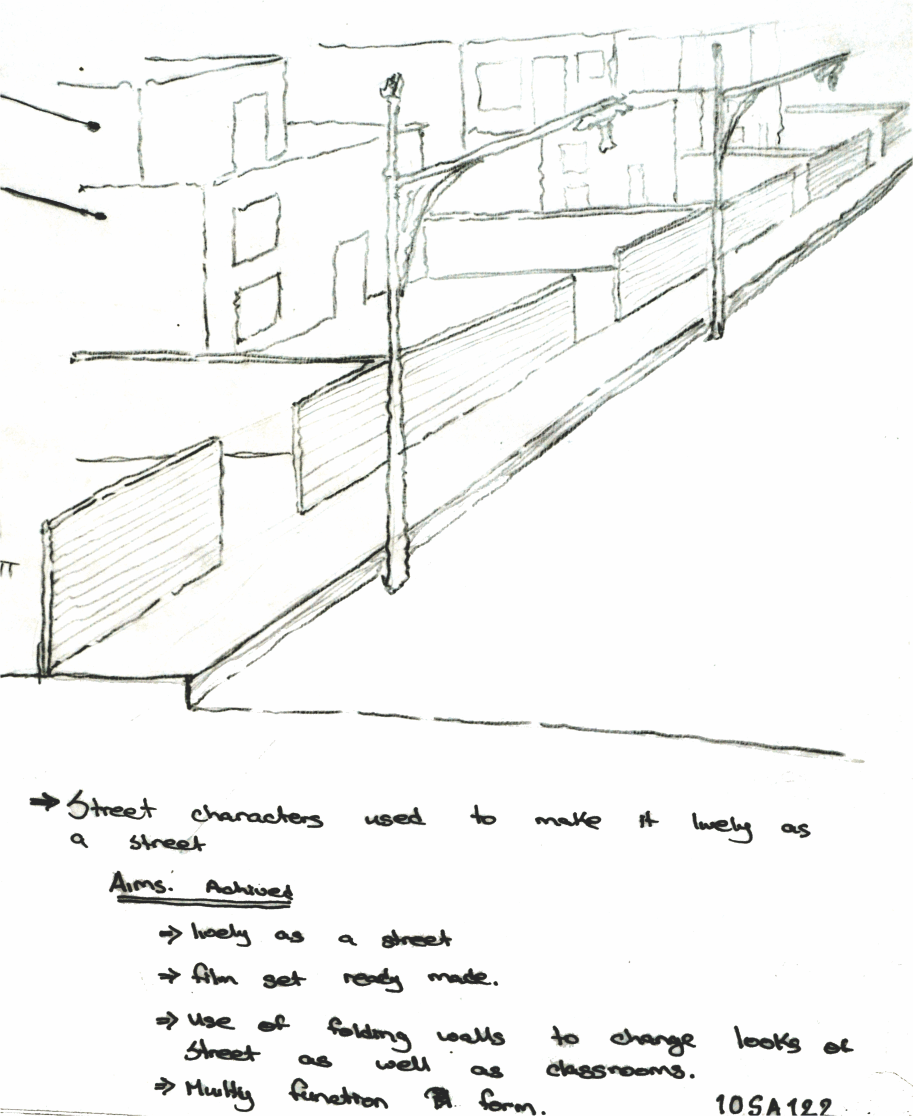 ➔ Street characters used to make it lively as
a street
Aims. Achived
⇒ lively as a street
⇒ film set ready made.
⇒ Use of folding walls to change looks of
Street as well as classrooms.
⇒ Multy function form.
10SA122